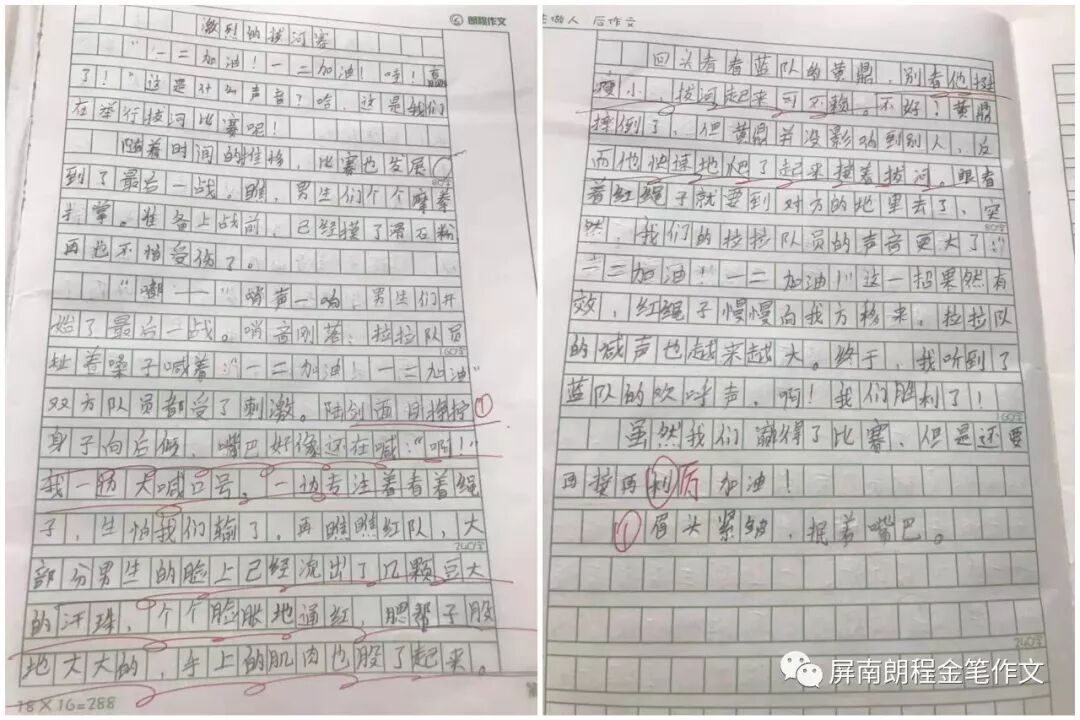 ⑥ 朗程作文
激烈的拔河赛
“一二加油！一二加油！哇！赢
了！”这是什么声音？哈，这是我们
在举行拔河比赛呢！
随着时间的推移，比赛也发展
80字
到了最后一战。瞧，男生们个个摩拳
擦掌。准备上战前，已经摸了滑石粉
再也不怕受伤了。
“嘟——”哨声一响，男生们开
始了最后一战。哨音刚落，拉拉队员
160字
扯着嗓子喊着：“一二加油！一二加油”
双方队员都受了刺激。陆剑面目狰狞①
身子向后倾，嘴巴好像还在喊：“啊！”
我一边大喊口号，一边专注着看着绳
子，生怕我们输了。再瞧瞧红队，大
240字
部分男生的脸上已经流出了几颗豆大
的汗珠，个个脸胀地通红，腮帮子股
地大大的，手上的肌肉也股了起来。
18×16=288
做人 后作文
回头看看蓝队的黄鼎，别看他挺
瘦小，拔河起来可不赖。不好！黄鼎
摔倒了，但黄鼎并没影响到别人，反
而他快速地爬了起来接着拔河。眼看
着红绳子就要到对方的地里去了，突
80字
然，我们的拉拉队员的声音更大了：“
一二加油！一二加油！”这一招果然有
效，红绳子慢慢向我方移来，拉拉队
的喊声也越来越大。终于，我听到了
蓝队的欢呼声，啊！我们胜利了！
160字
虽然我们赢得了比赛，但是还要
再接再利厉加油！
①眉头紧皱，抿着嘴巴。
240字
屏南朗程金笔作文